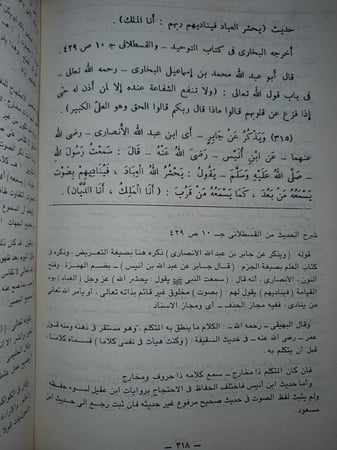 حديث (يحشر العباد فيناديهم ربهم : أنا الملك) .
أخرجه البخارى فى كتاب التوحيد ــ والقسطلانى جـ ١٠ ص ٤٢٩
قال أبو عبد الله محمد بن إسماعيل البخارى ــ رحمه الله تعالى ــ
فى باب قول الله تعالى : (ولا تنفع الشفاعة عنده إلا لمن أذن له حتى
إذا فزع عن قلوبهم قالوا ماذا قال ربكم قالوا الحق وهو العلىّ الكبير) .
(٣١٥) وَيُذْكَرُ عَنْ جَابِرٍ ــ أى ابن عبد الله الأنصارى ــ رضى الله
عنهما ــ عَنِ ابْنِ أُنَيْسٍ ــ رَضِىَ اللهُ عَنْهُ ــ قَالَ : سَمِعْتُ رَسُولَ اللهِ
ــ صَلَّى اللهُ عَلَيْهِ وَسَلَّمَ ــ يَقُولُ : يَحْشُرُ اللهُ الْعِبَادَ ، فَيُنَادِيهِمْ بِصَوْتٍ
يَسْمَعُهُ مَنْ بَعُدَ ، كَمَا يَسْمَعُهُ مَنْ قَرُبَ : (أَنَا الْمَلِكُ ، أَنَا الدَّيَّانُ) .
شرح الحديث من القسطلانى جـ ١٠ ص ٤٢٩
قوله (ويذكر عن جابر بن عبد الله الأنصارى) ذكره هنا بصيغة التعريض ، وذكره فى
كتاب العلم بصيغة الجزم (قال جابر عن عبد الله بن أنيس) ــ بضم الهمزة ، وفتح
النون ، الأنصارى ، أنه قال : (سمعت النبى يقول : يحشر الله) عز وجل (العباد) يوم
القيامة (فيناديهم) يقول لهم (بصوت) مخلوق غير قائم بذاته تعالى ، أو يأمر الله تعالى
من ينادى ، ففيه مجاز الحذف ، أى ومجاز الإسناد .
وقال البيهقى ــ رحمه الله ــ : الكلام ما ينطق به المتكلم ، وهو مستقر فى ذهنه ومنه قول
عمر ــ رضى الله عنه ــ فى حديث السقيفة ، (وكنت هيأت فى نفسى كلاما) ، فسماه كلاما ،
قبل أن يتكلم به .
فإن كان المتكلم ذا مخارج ــ سمع كلامه ذا حروف ومخارج
وأما حديث ابن أنيس فاختلف الحفاظ فى الاحتجاج بروايات ابن عقيل لسوء حفظه ،
ولم يثبت لفظ الصوت فى حديث صحيح مرفوع غير حديثه فإن ثبت رجع إلى حديث ابن
مسعود .
ــ ٣١٨ ــ